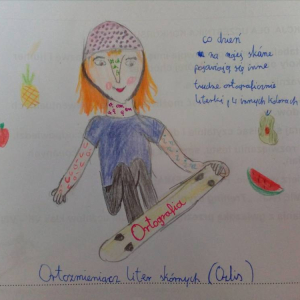 co dzień
na mojej skórze
pojawiają się inne
trudne ortograficznie
literki, w różnych kolorach
Ortografia
Ortozmieniacz liter skórnych (Orlis)